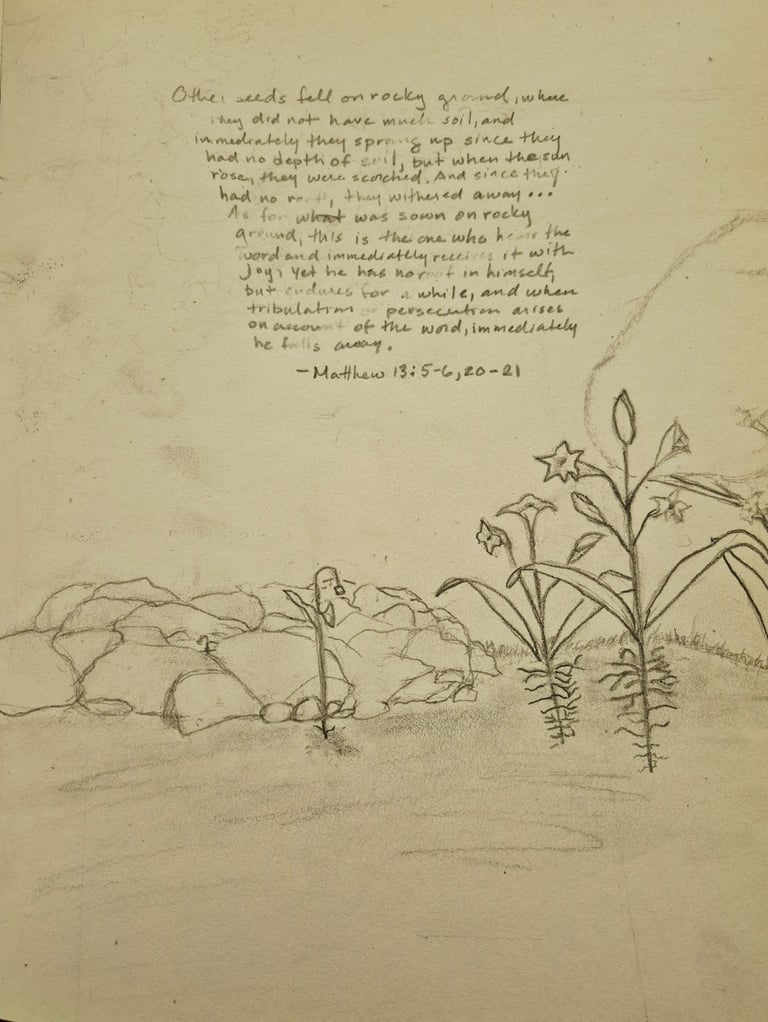 Other seeds fell on rocky ground, where
they did not have much soil, and
immediately they sprang up since they
had no depth of soil, but when the sun
rose, they were scorched. And since they
had no root, they withered away...
As for what was sown on rocky
ground, this is the one who hears the
word and immediately receives it with
joy, yet he has no root in himself,
but endures for a while, and when
tribulation or persecution arises
on account of the word, immediately
he falls away.
- Matthew 13:5-6, 20-21